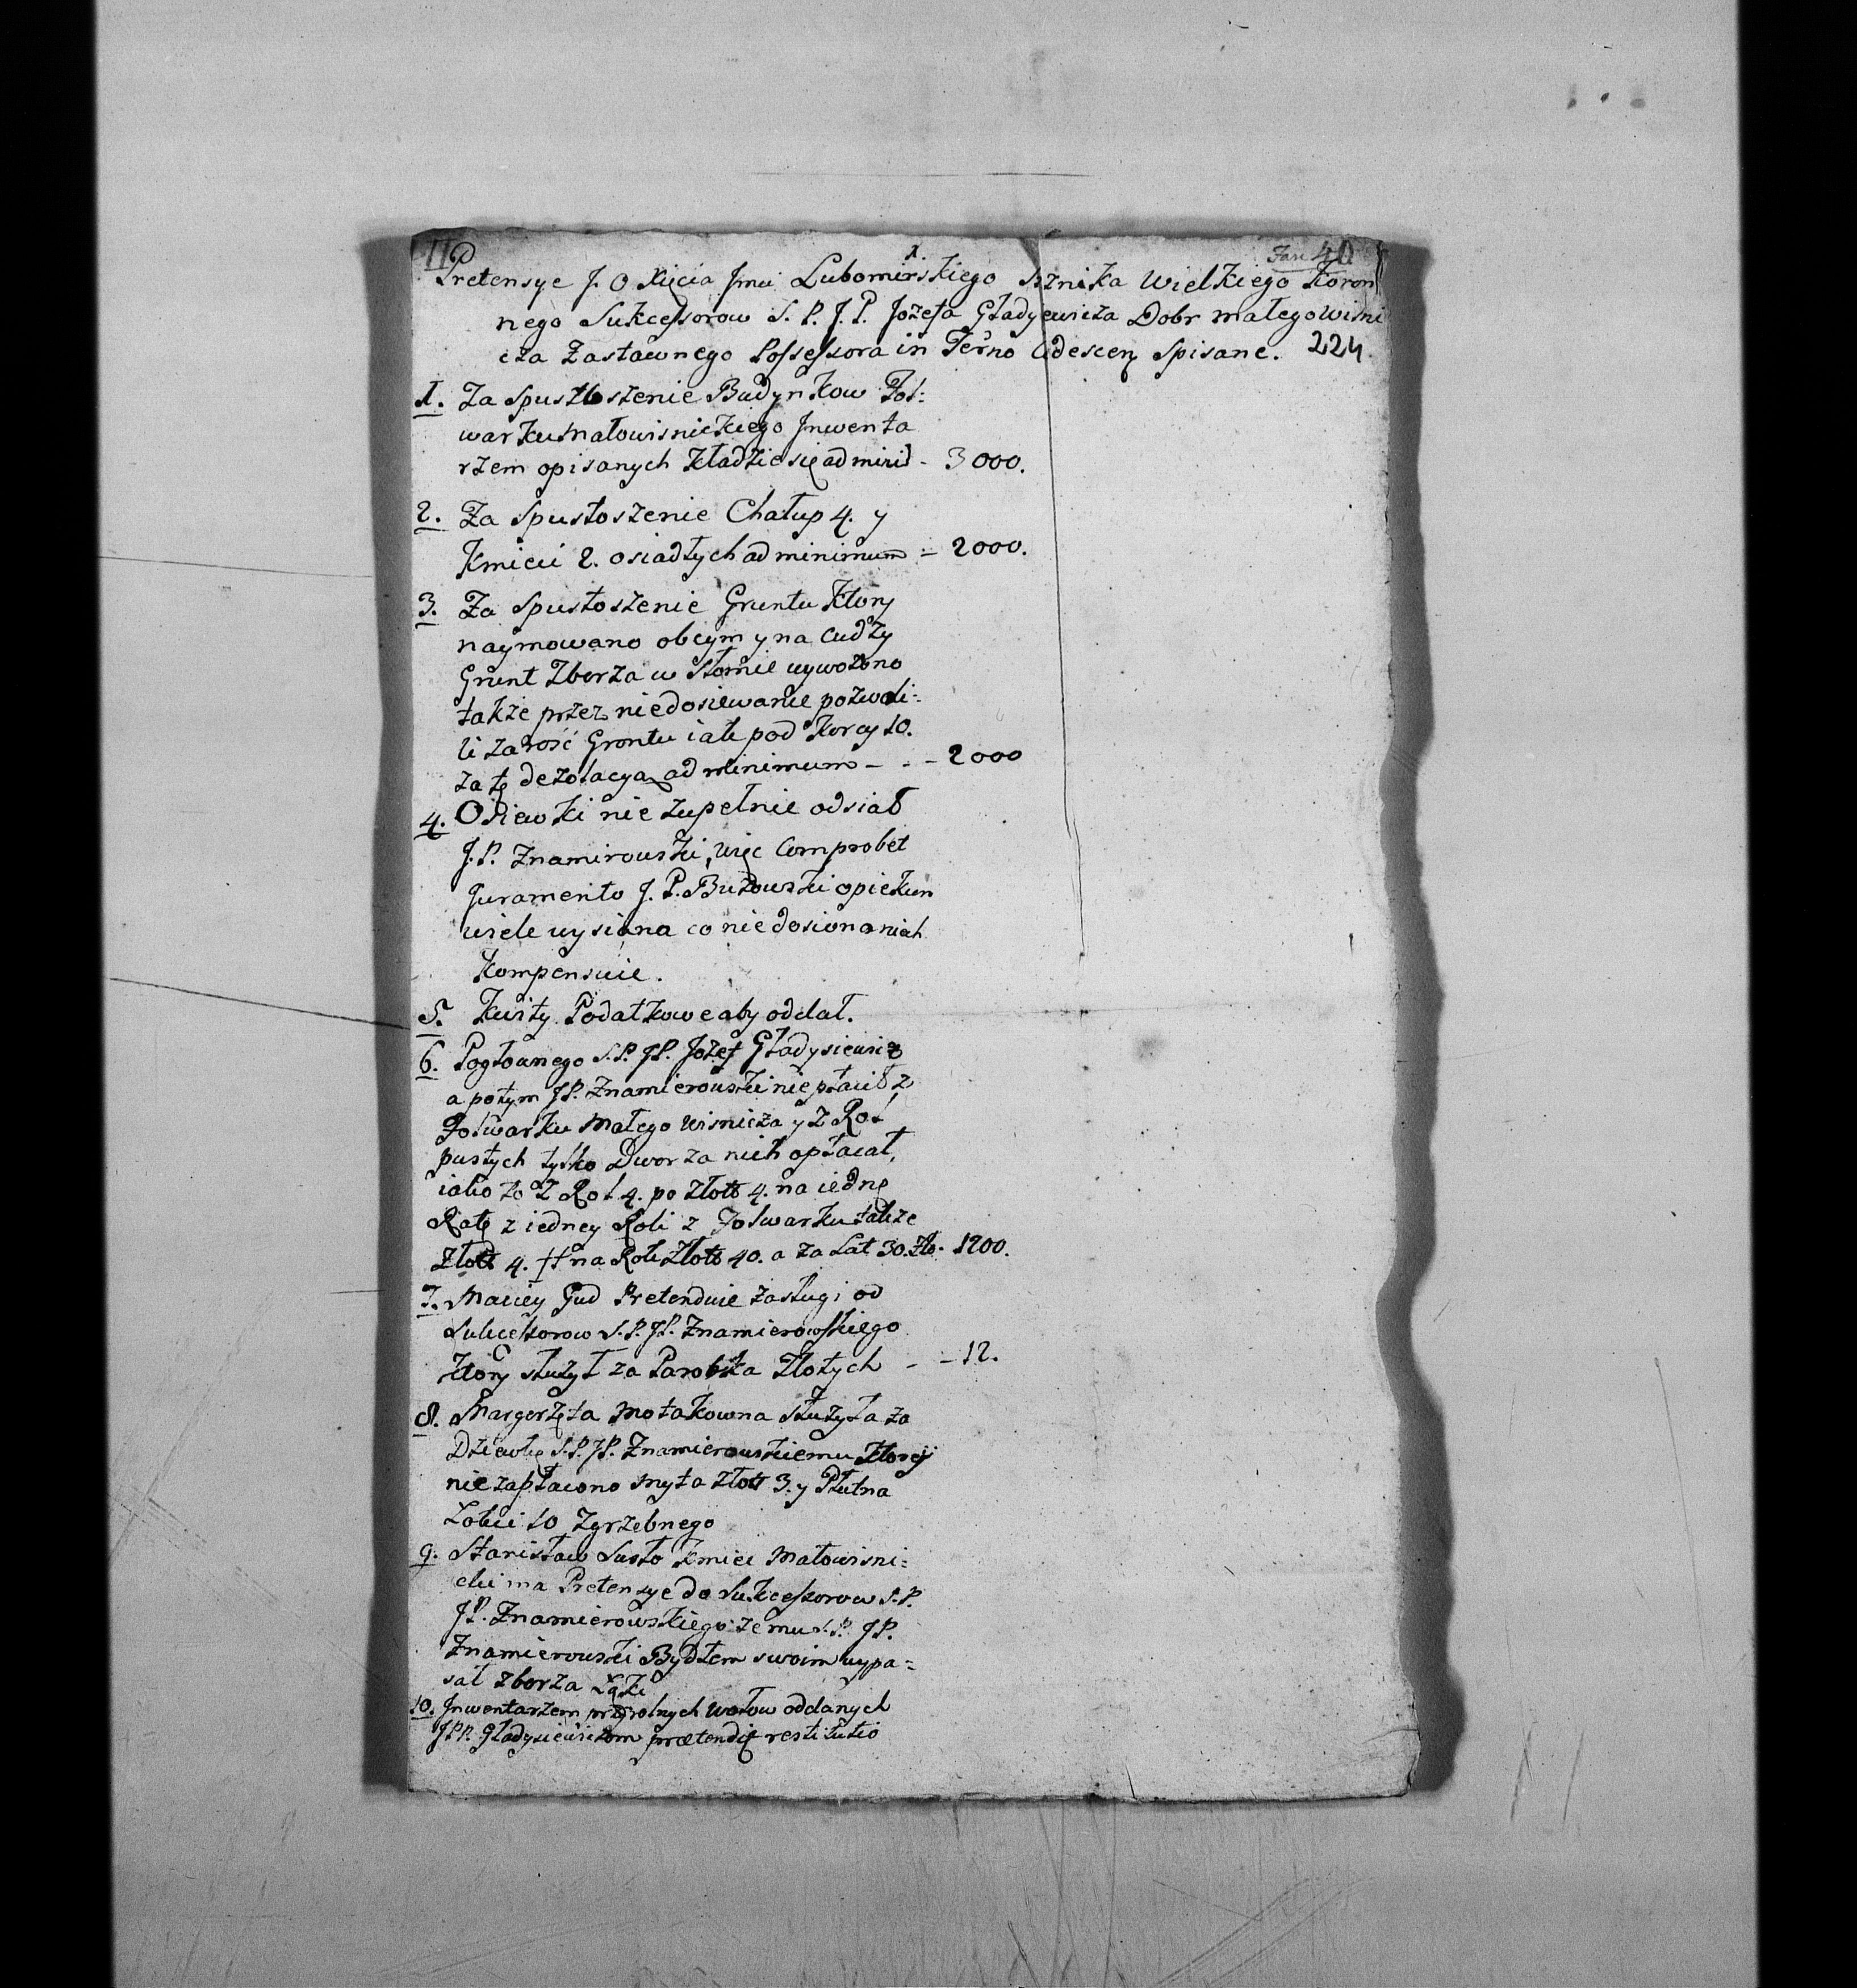 1.
Fasc 40
Pretensye J. O Xięcia Jmci Lubomirskiego Strażnika Wielkiego Koron
nego Sukcessorow S. P. J. P. Jozefa Gładyewicza Dobr małego Wisni
cza Zastawnego Possessora in Termo Spisane. 224
1. Za Spustoszenie Budynkow Fol:
warku Małowisnickiego Jnwenta
rzem opisanych kładzie się ad minid - 3000.
2. Za Spustoszenie Chałup 4. y
Kmieci 2. osiadłych ad minimum = 2000.
3. Za Spustoszenie Gruntu ktory
naymowano obcym y na cudzy
Grunt Zborza w Słomie wywożono
także przez niedosiewanie pozwoli:
li zarość Grontu iak pod korcy 10.
za tę dezolacyą ad minimum - - - 2000
4. Osiewki nie zupełnie odsiał
J. P. Znamirowski, więc Comprobet
Juramento J. P. Bukowski opiekun
wiele wysiano co niedosionaniach
kompensuie.
5. Kwity Podatkowe aby oddał.
6. Pogłownego S. P. JP. Jozef Gładysiewicz
a potym JP. Znamierowski nie płacił z
Folwarku Małego Wisnicza y z Rol
pustych tylko Dwor za nich opłacał,
iako to z Rol 4. po Złott 4. na iednę
Ratę z iedney Roli z Folwarku także
Złott 4. ff na Rok Złott 40. a za Lat 30. Zło. 1200.
7. Maciey Gud Pretenduie zasługi od
Sukcessorow S. P. JP. Znamierowskiego
ktory służył za Parobka Złotych - - 12.
8. Margorzęta Motakowna służyła za
Dziewkę S. P. JP. Znamierowskiemu ktorej
nie zapłacono Myta złott 3. y Płutna
Łokci 10 Zgrzebnego
9. Stanisław Susło Kmieć Małowisni:
cki ma Pretensye do Sukcessorow S. P.
JP. Znamierowskiego że mu S. P. JP.
Znamierowski Bydłem swoim wypa=
sał zborza Łąki
10. Jnwentarzem przy rolnych wołow oddanych
JPP. Gładysiewiczom prætendit restitutio